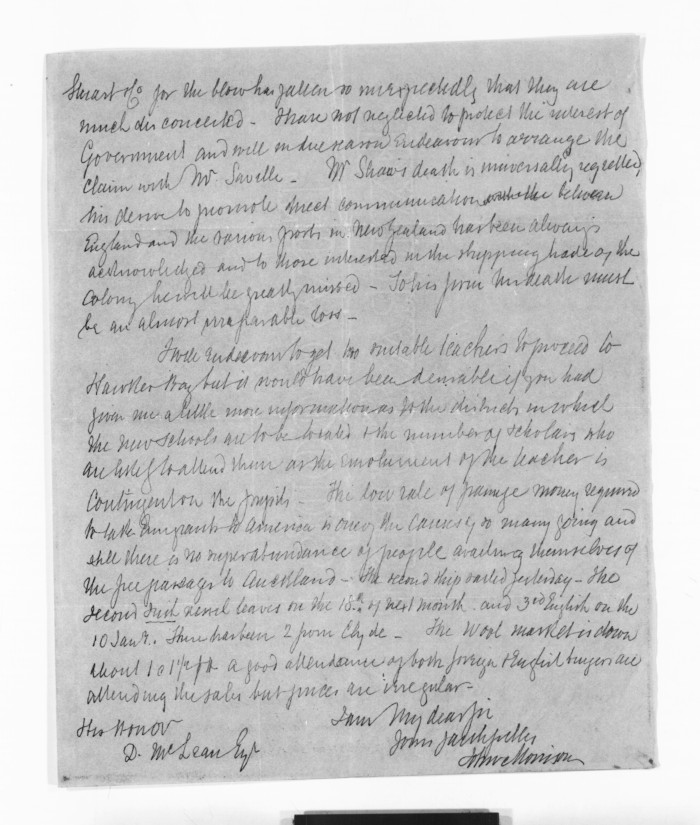 Stuart & Co for the blow has fallen so unexpectedly that they are
much disconcerted - I have not neglected to protect the interest of
Government and will in due season endeavour to arrange the
claim with Mr Saville - Mr Shaw's death is universally regretted,
his desire to promote direct communication between
England and the various ports in New Zealand has been always
acknowledged and to those interested in the shipping trade of the
Colony he will be greatly missed - To his firm his death must
be an almost irreparable loss -
I will endeavour to get two suitable teachers to proceed to
Hawkes Bay but it would have been desirable if you had
given me a little more information as to the districts in which
the new schools are to be located & the number of scholars who
are likely to attend them as the emolument of the teacher is
contingent on the pupils - The low rate of passage money required
to take Emigrants to America is one of the causes of so many going and
still there is no superabundance of people availing themselves of
the free passage to Auckland - The second ship sailed yesterday - The
second Irish vessel leaves on the 18th of next month and 3rd English on the
10 Jany. There has been 2 from Clyde - The Wool market is down
about 1 a good attendance of both foreign & English buyers are
attending the sales but prices are irregular -
His Honor
I am My dear Sir
Yours faithfully
D. McLean Esqr
John Morrison